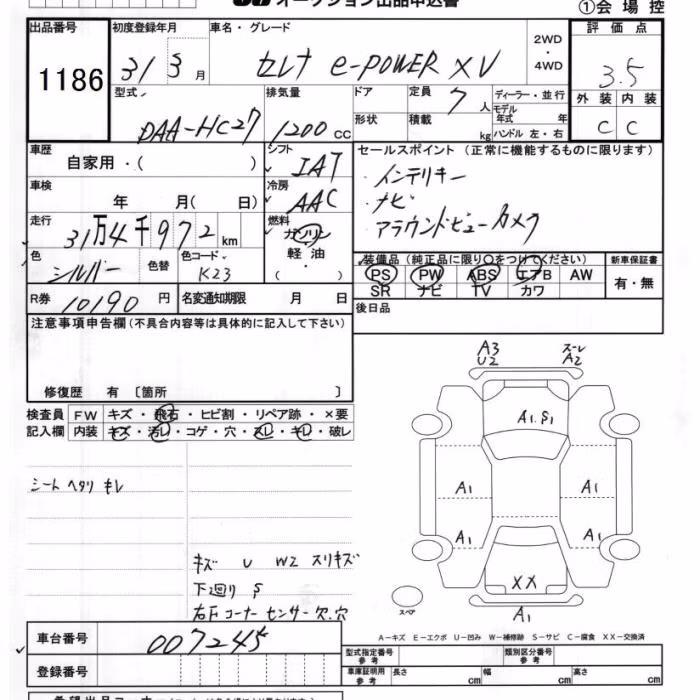 オークション出品申込書
①会場控
出品番号 初度登録年月 車名・グレード 2WD ・ 4WD 評価点
1186 31 3月 セレナ e-POWER XV 3.5
型式 排気量 ドア 定員 7人 ディーラー・並行 外装 内装
モデル年式 年
DAA-HC27 1200cc 形状 積載 kg ハンドル 左・右 C C
車歴 シフト セールスポイント (正常に機能するものに限ります)
自家用・( ) IAT
インテリキー
車検 冷房
年 月( 日) AAC ナビ
アラウンドビューカメラ
走行 燃料
31万4千972km ガソリン
軽油
・( )
色 色替 色コード 装備品 (純正品に限り○をつけてください) 新車保証書
シルバー K23 PS PW ABS エアB AW 有・無
SR ナビ TV カワ
R券 10190円 名変通知期限 月 日 後日品
注意事項申告欄(不具合内容等は具体的に記入して下さい)
修復歴 有 〔箇所 〕
検査員 FW キズ・飛石・ヒビ割・リペア跡・×要
記入欄 内装 キズ・汚レ・コゲ・穴・スレ・キレ・破レ
シート ヘタリ キレ
キズ U W2 スリキズ
下廻り S
右Fコーナーセンサー欠.穴
A3 スーレ
U2 A2
A1.S1
A1 A1
A1 A1
XX
スペア
A1
A-キズ E-エクボ U-凹み W-補修跡 S-サビ C-腐食 XX-交換済
車台番号 007245
登録番号
型式指定番号 参考 類別区分番号 参考
車庫証明用 参考 長さ cm 幅 cm 高さ cm